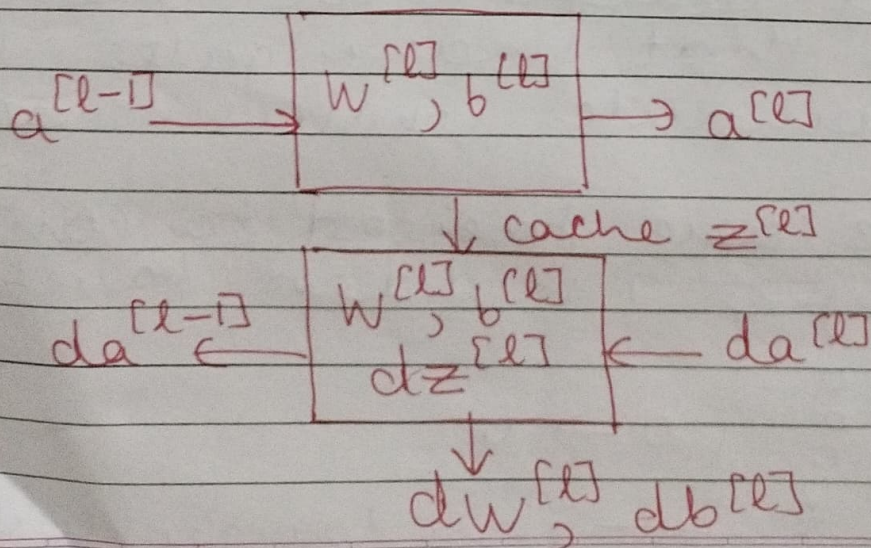 a^[l-1] → W^[l], b^[l] → a^[l]
↓ cache z^[l]
da^[l-1] ← W^[l], b^[l] ← da^[l]
dz^[l]
↓
dW^[l], db^[l]